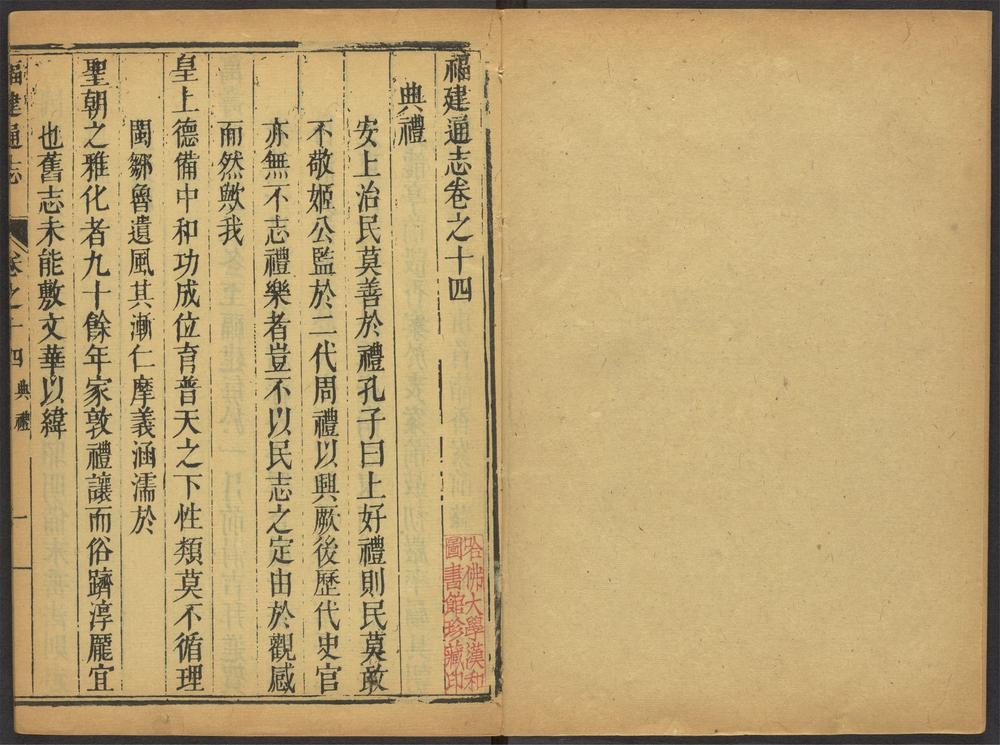 福建通志卷之十四
典禮
安上治民莫善於禮孔子曰上好禮則民莫敢
不敬姬公監於二代周禮以興厥後歷代史官
亦無不志禮樂者豈不以民志之定由於觀感
而然歟我
皇上德備中和功成位育普天之下性類莫不循理
閩鄒魯遺風其漸仁摩義涵濡於
聖朝之雅化者九十餘年家敦禮讓而俗躋淳龐宜
也舊志未能敷文華以緯
福建通志
卷之十四 典禮 一
哈佛大學漢和
圖書館珍藏印